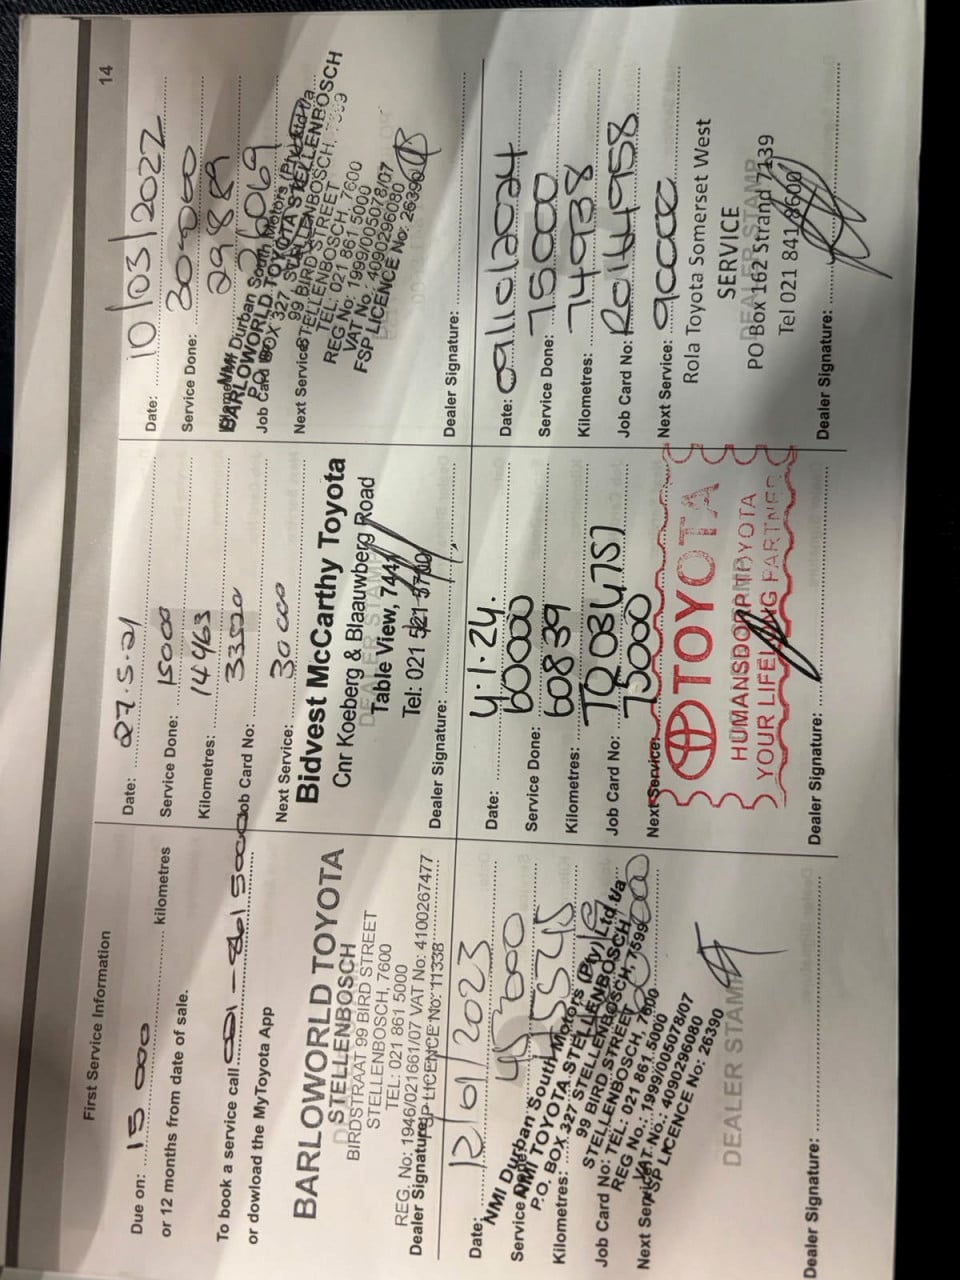 14
First Service Information
Due on: 15 000 kilometres
or 12 months from date of sale.
To book a service call 021-861 5000
or dowload the MyToyota App
BARLOWORLD TOYOTA
STELLENBOSCH
BIRDSTRAAT 99 BIRD STREET
STELLENBOSCH, 7600
TEL: 021 861 5000
REG. No: 1946/021661/07 VAT No: 4100267477
FSP LICENCE No: 11338
Dealer Signature:
Date: 27.5.21
Service Done: 15000
Kilometres: 14463
Job Card No: 33520
Next Service: 30000
Bidvest McCarthy Toyota
Cnr Koeberg & Blaauwberg Road
DEALER STAMP
Table View, 7441
Tel: 021 521 3700
Dealer Signature:
Date: 10/03/2022
Service Done: 30 000
29889
Job Card No:
Next Service:
NMI Durban South Motors (Pty) Ltd t/a
BARLOWORLD TOYOTA STELLENBOSCH
P.O. BOX 327 STELLENBOSCH,
99 BIRD STREET
STELLENBOSCH, 7600
TEL: 021 861 5000
REG No: 1999/005078/07
VAT No.: 4090296080
FSP LICENCE No: 26390
Dealer Signature:
Date: 12/01/2023
Service Done: 45 000
Kilometres:
Job Card No:
Next Service:
NMI Durban South Motors (Pty) Ltd t/a
NMI TOYOTA STELLENBOSCH
P.O. BOX 327 STELLENBOSCH, 7599
99 BIRD STREET
STELLENBOSCH, 7600
TEL: 021 861 5000
REG No.: 1999/005078/07
VAT No.: 4090296080
FSP LICENCE No: 26390
DEALER STAMP
Dealer Signature:
Date: 4.1.24.
Service Done: 60000
Kilometres: 60839
Job Card No: TO034757
Next Service: 75000
TOYOTA
HUMANSDORP TOYOTA
YOUR LIFELONG PARTNER
Dealer Signature:
Date: 09/10/2024
Service Done: 75000
Kilometres: 74938
Job Card No: R0164958
Next Service: 90000
Rola Toyota Somerset West
SERVICE
DEALER STAMP
PO Box 162 Strand 7139
Tel 021 841 8600
Dealer Signature: